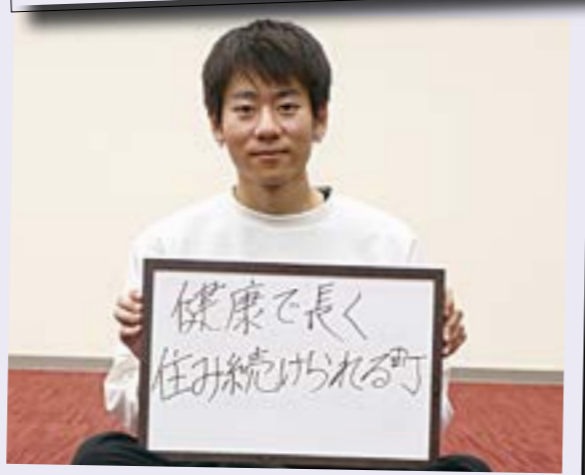 健康で長く
住み続けられる町